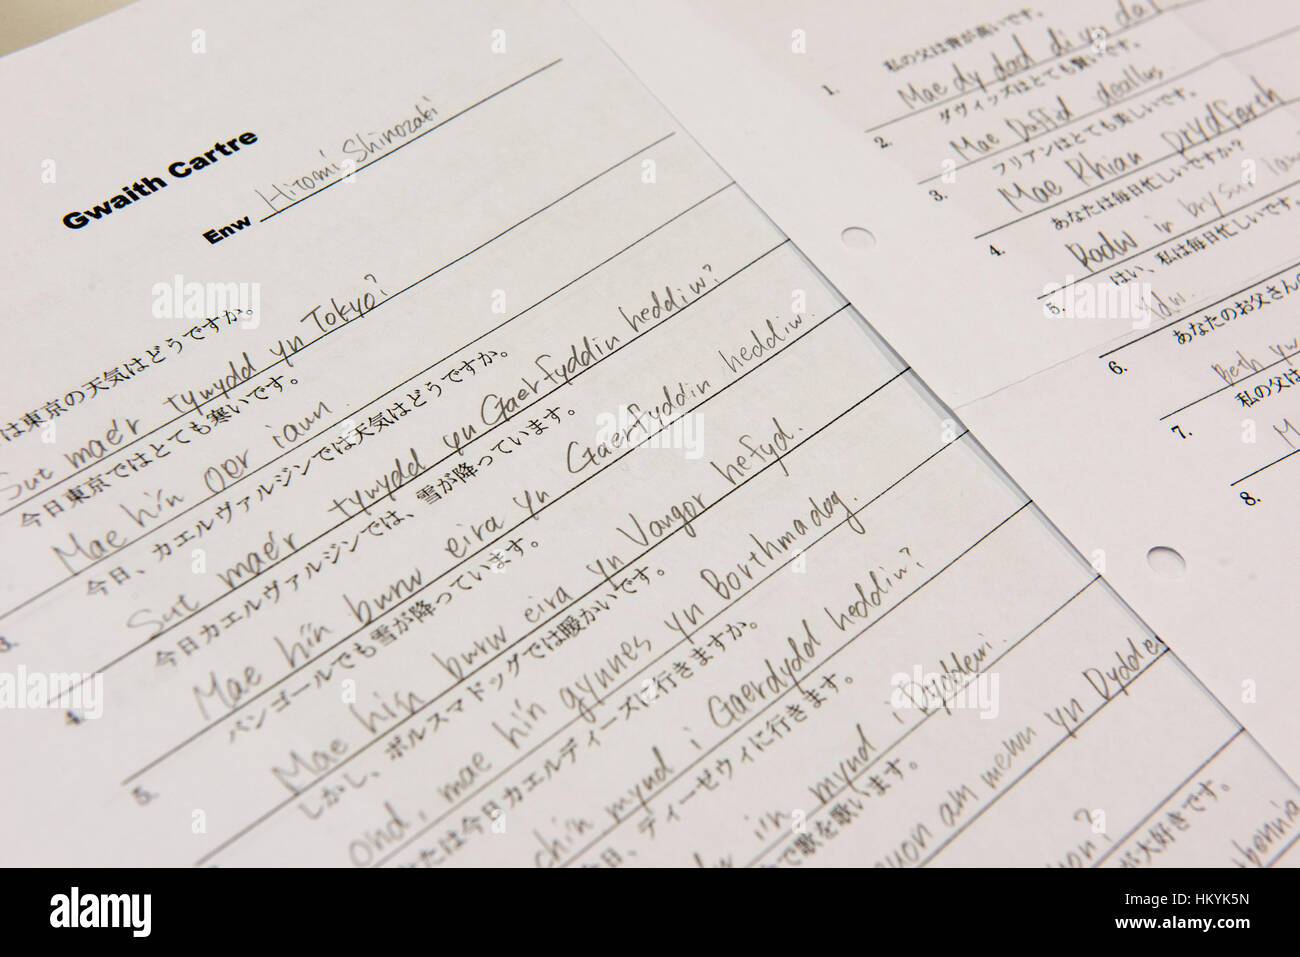 Gwaith Cartre
Enw Hiromi Shinozaki
は東京の天気はどうですか。
Sut mae'r tywydd yn Tokyo?
今日東京ではとても寒いです。
Mae hi'n oer iawn
今日、カエルヴァルジンでは天気はどうですか。
3.
Sut mae'r tywydd yn Gaerfyddin heddiw?
今日カエルヴァルジンでは、雪が降っています。
4.
Mae hi'n bwrw eira yn Gaerfyddin heddiw.
バンゴールでも雪が降っています。
5.
Mae hi'n bwrw eira yn Vangor hefyd.
しかし、ボルスマドッグでは暖かいです。
ond, mae hi'n gynnes yn Borthmadog.
たは今日カエルディーズに行きますか。
chi'n mynd i Gaerdydd heddiw?
日、ディーゼウィに行きます。
i'n mynd i Dyddewi.
で歌を歌います。
am mewn yn Dydde
が大好きです。
私の父は背が高いです。
1. Mae dy dad di yn dal
ダヴィッズはとても賢いです。
2. Mae Daffd deallus
フリアンはとても美しいです。
3. Mae Rhian prydferth
あなたは毎日忙しいですか?
4. Radw in brysur
はい、私は毎日忙しいです。
5. Ydw.
あなたのお父さんの
6. Beth yw
私の父は
7. M
8.
alamy
alamy
Image ID: HKYK5N
www.alamy.com